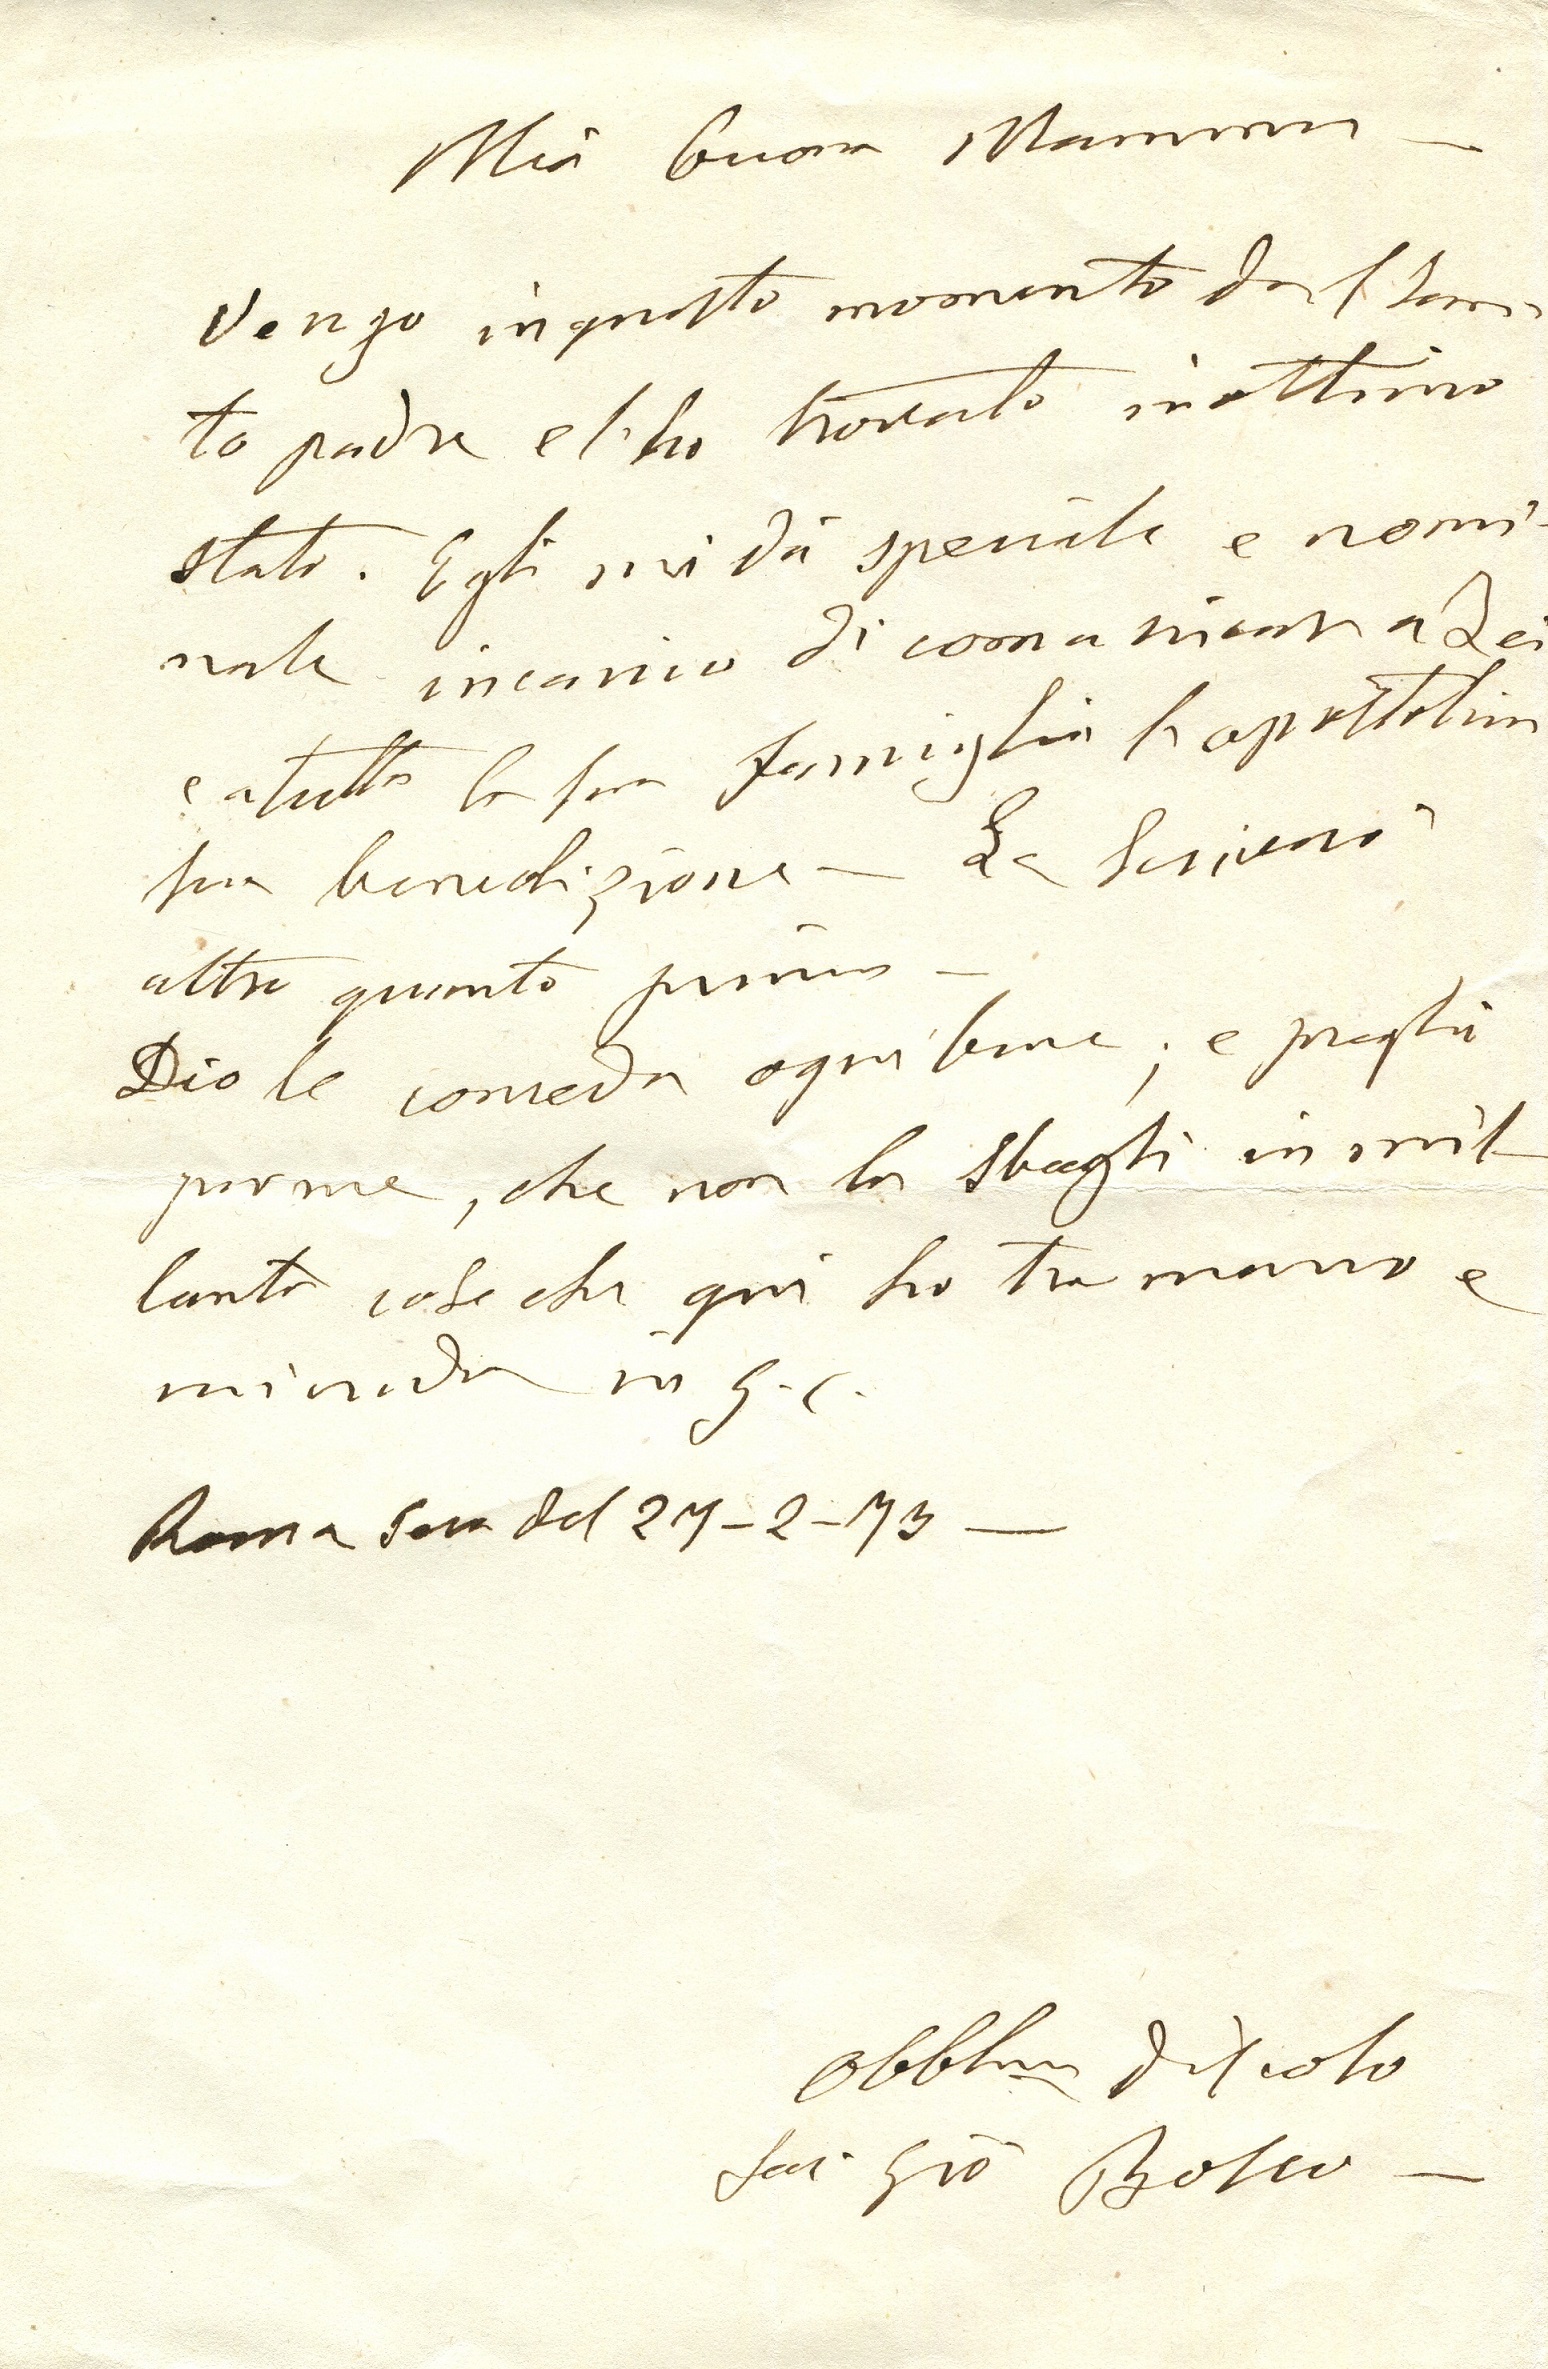 Mia buona Mamma —
Vengo in questo momento dal San
to padre e l'ho trovato in ottimo
stato. Egli mi dà speciale e nomi-
nale incarico di comunicare a Lei
e a tutta la sua famiglia l'apostolica
sua benedizione — Le scriverò
altro quanto prima —
Dio le conceda ogni bene; e preghi
per me, che non la sbagli in mil-
lanta cose che qui ho tra mano e
mi creda in G. C.
Roma Sera del 27-2-73 —
Obbl.mo discolo
Sac. Gio Bosco —